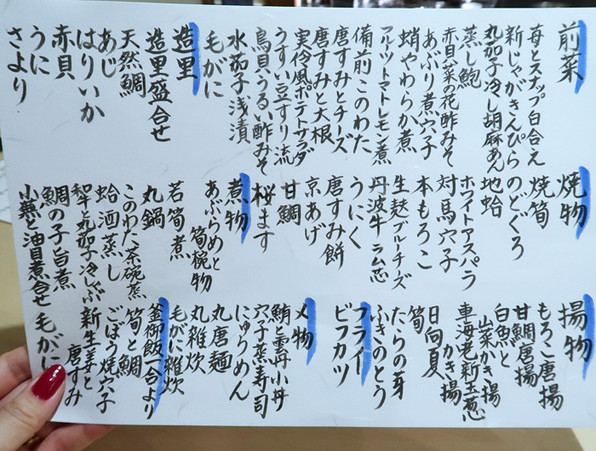 前菜
苺とスナップ白合え
新じゃがきんぴら
丸茄子冷し胡麻あん
蒸し鮑
赤貝と菜の花酢みそ
あぶり煮穴子
蛸やわらか煮
フルーツトマトレモン煮
備前このわた
唐すみとチーズ
唐すみと大根
実伶風ポテトサラダ
うすい豆すり流
鳥貝うるい酢みそ
水茄子浅漬
毛がに
造里
造里盛合せ
天然鯛
あじ
はりいか
赤貝
うに
さより
焼物
焼筍
のどぐろ
地蛤
ホワイトアスパラ
対馬穴子
本もろこ
生麩ブルーチーズ
丹波牛ラム芯
うにく
唐すみ餅
京あげ
甘鯛
桜ます
煮物
あぶらめと
筍椀物
若筍煮
丸鍋
このわた茶碗蒸
蛤酒蒸し
和牛と丸茄子冷しゃぶ
鯛の子旨煮
小蕪と油目煮合せ
揚物
もろこ唐揚
甘鯛唐揚
白魚と
山菜かき揚
車海老新玉葱
かき揚
日向夏
筍
たらの芽
ふきのとう
フライ
ビフカツ
〆物
鮪と雲丹小丼
穴子棒寿司
にゅうめん
丸唐麺
丸雑炊
毛がに雑炊
釜御飯二合より
筍と鯛
ごぼう焼穴子
新生姜と
唐すみ
毛がに